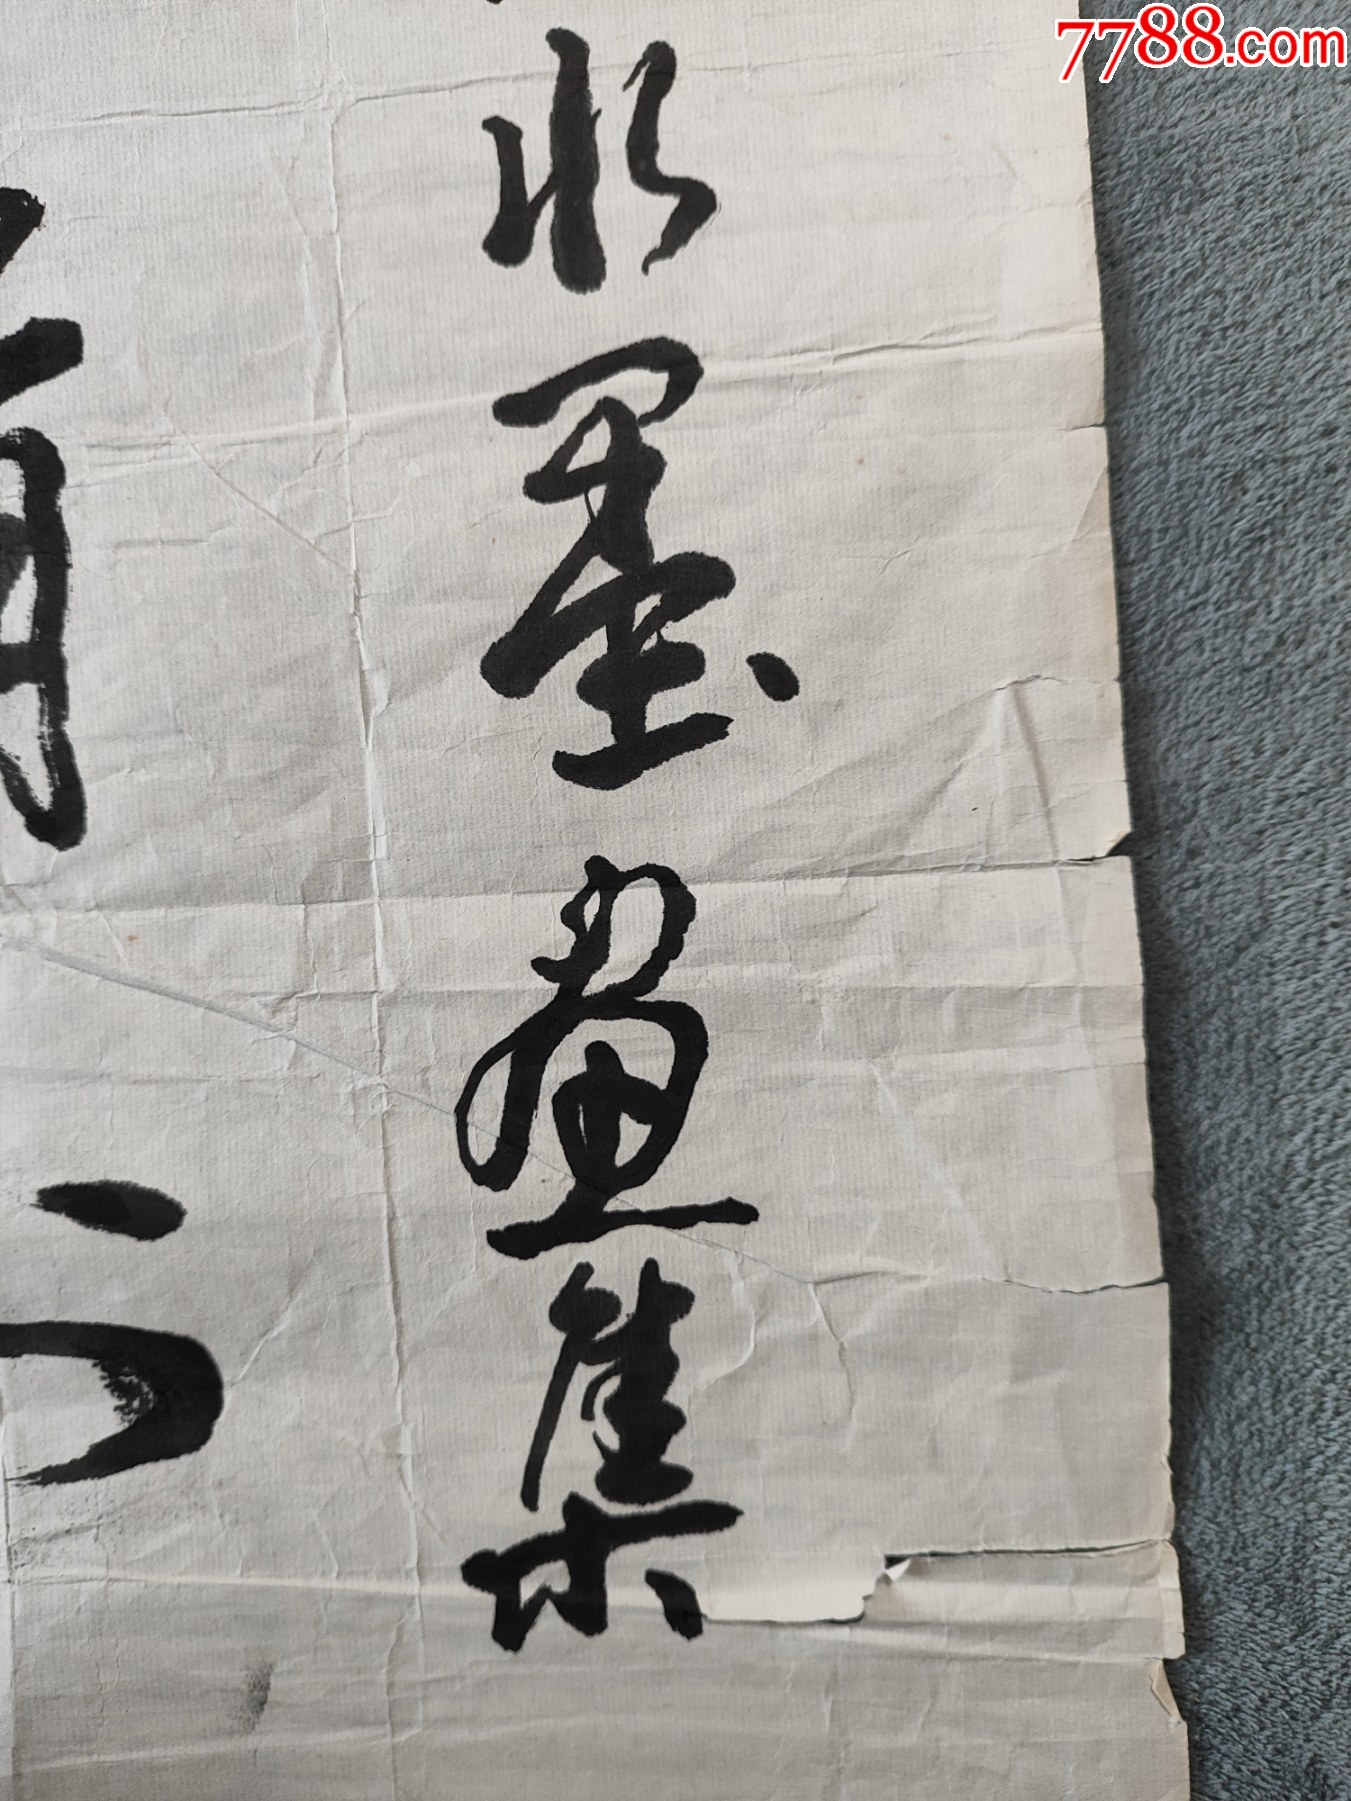 7788.com
水墨畫集